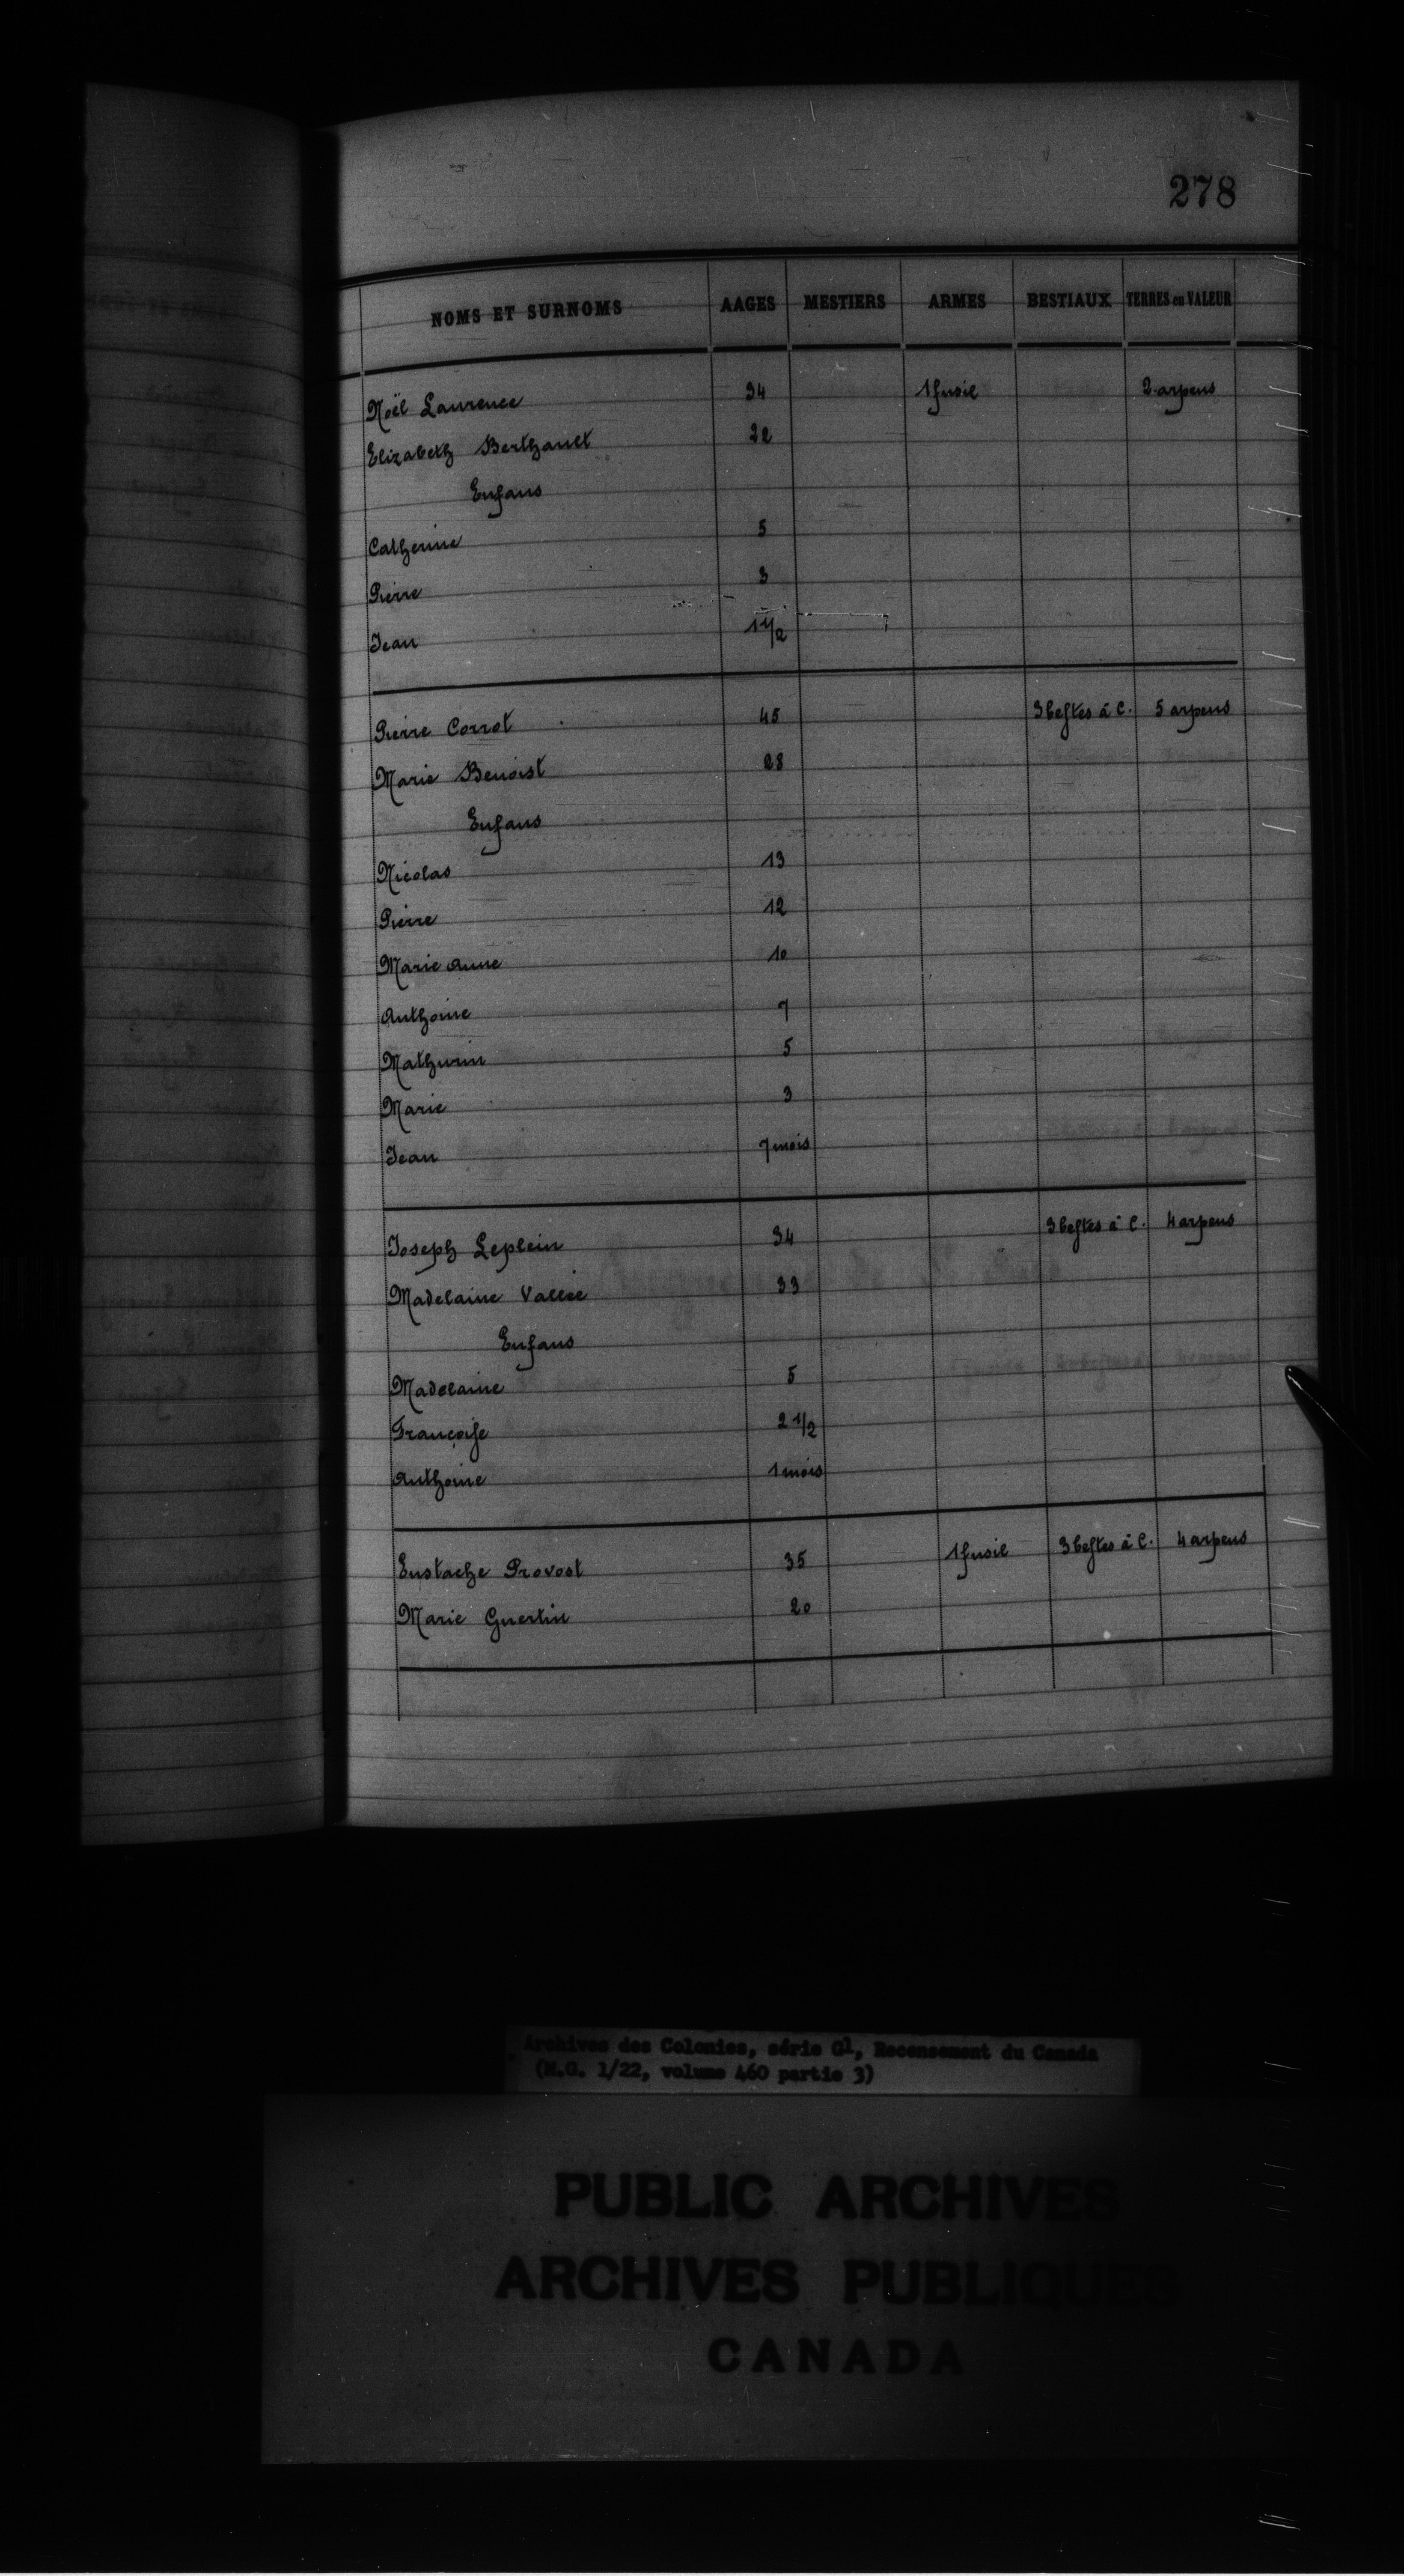 278
NOMS ET SURNOMS AAGES MESTIERS ARMES BESTIAUX TERRES en VALEUR
Noël Laurence 34 1 fusil 2 arpens
Elizabeth Berthault 22
Enfans
Catherine 5
Pierre 3
Jean 1 1/2
Pierre Corrot 45 3 bestes à C. 5 arpens
Marie Benoist 28
Enfans
Nicolas 13
Pierre 12
Marie Anne 10
Anthoine 7
Mathurin 5
Marie 3
Jean 7 mois
Joseph Leplein 34 3 bestes à C. 4 arpens
Madelaine Vallée 33
Enfans
Madelaine 5
Françoise 2 1/2
Anthoine 1 mois
Eustache Provost 35 1 fusil 3 bestes à C. 4 arpens
Marie Guertin 20
Archives des Colonies, série G1, Recensement du Canada
(M.G. 1/22, volume 460 partie 3)
PUBLIC ARCHIVES
ARCHIVES PUBLIQUES
CANADA